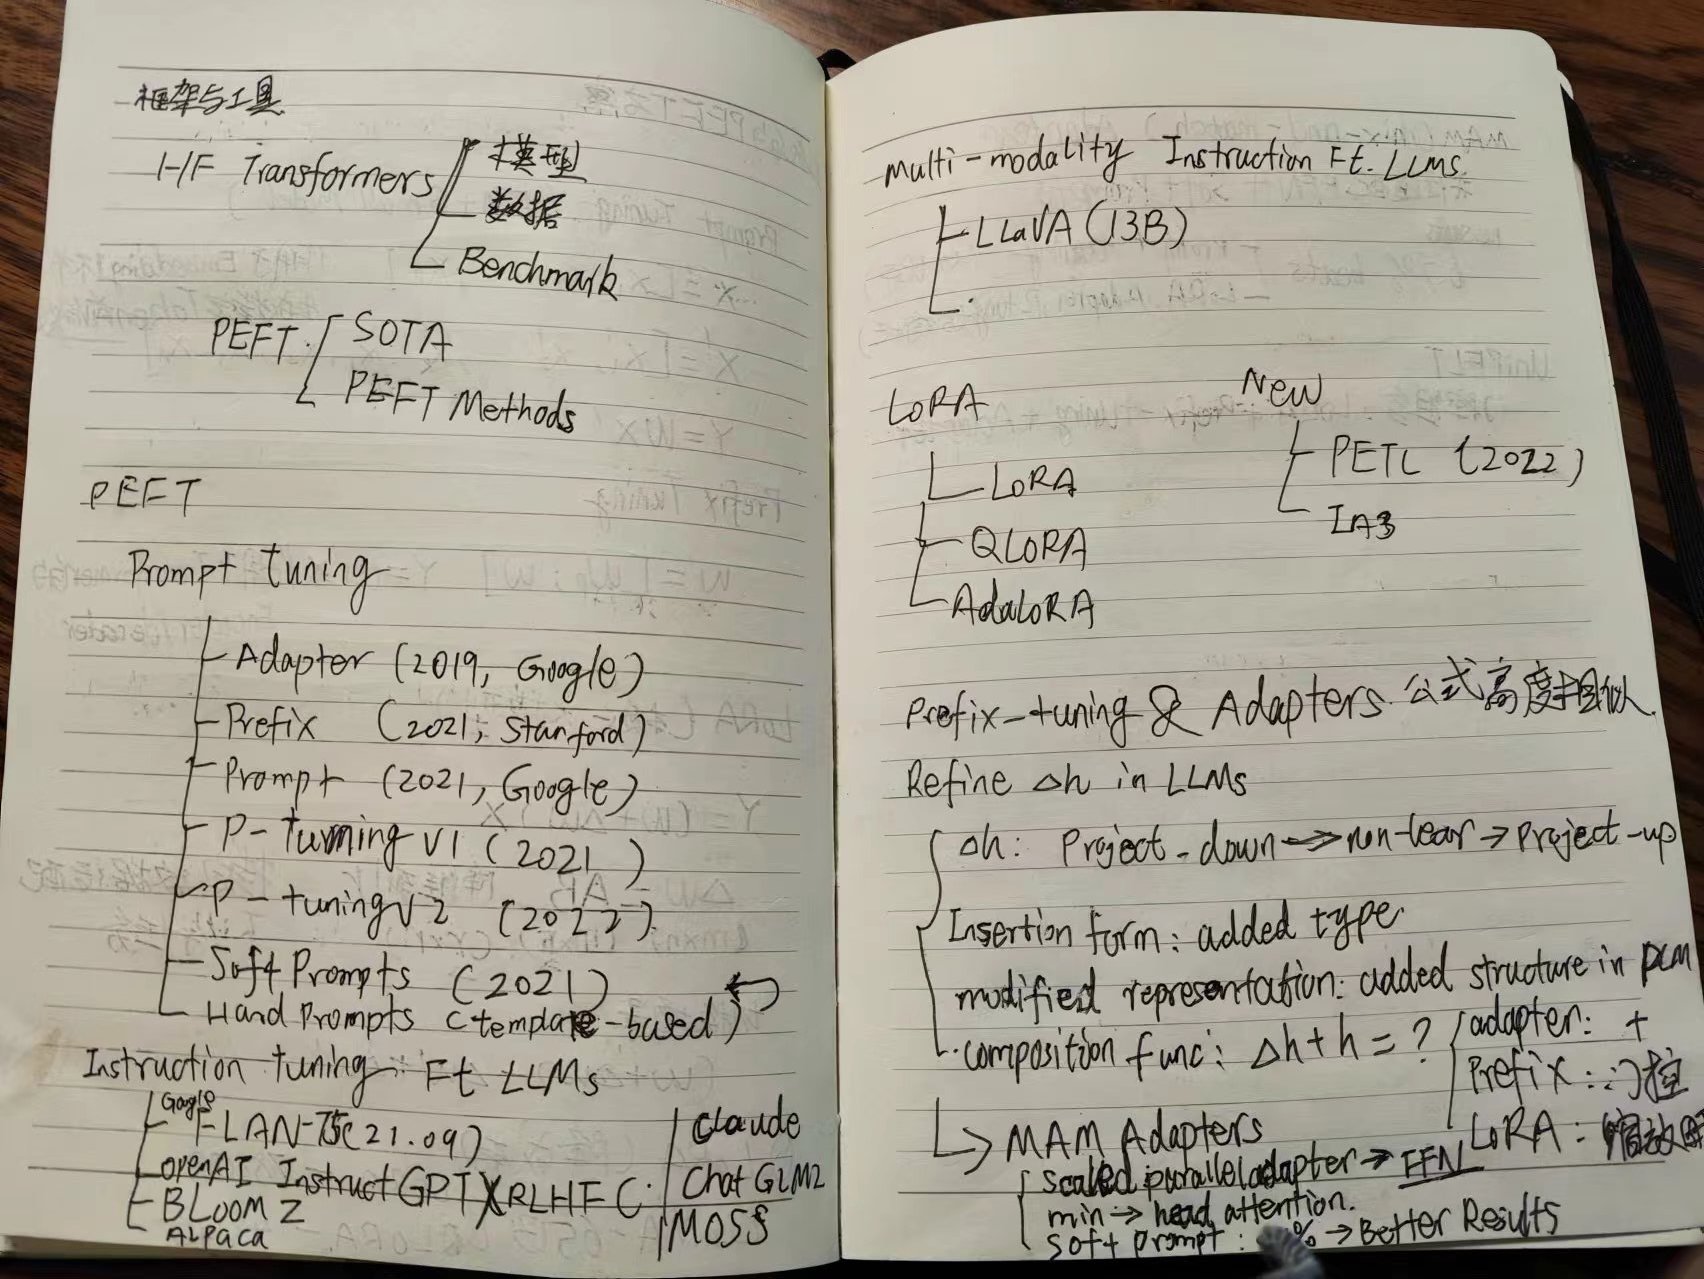 框架与工具
HF Transformers
模型
数据
Benchmark
PEFT
SOTA
PEFT Methods
PEFT
Prompt tuning
Adapter (2019, Google)
Prefix (2021, Stanford)
Prompt (2021, Google)
P-tuning V1 (2021)
P-tuning V2 (2022)
Soft Prompts (2021)
Hand Prompts (template-based)
Instruction tuning: Ft LLMs
Google
FLAN-T5(21.09)
openAI InstructGPT RLHF
BLoomZ
ALPaca
Claude
Chat GLM2
MOSS
Multi-modality Instruction Ft. LLMs.
LLaVA (13B)
LoRA
LoRA
QLoRA
AdaLoRA
New
PETL (2022)
IA3
Prefix-tuning & Adapters. 公式高度相似.
Refine Δh in LLMs
Δh: Project-down → non-lear → Project-up
Insertion form: added type
modified representation: added structure in PLM
composition func: Δh+h=?
adapter: +
Prefix: 门控
LoRA: 缩放
MAM Adapters
scaled parallel adapter → FFN
min → head attention.
soft prompt: % → Better Results